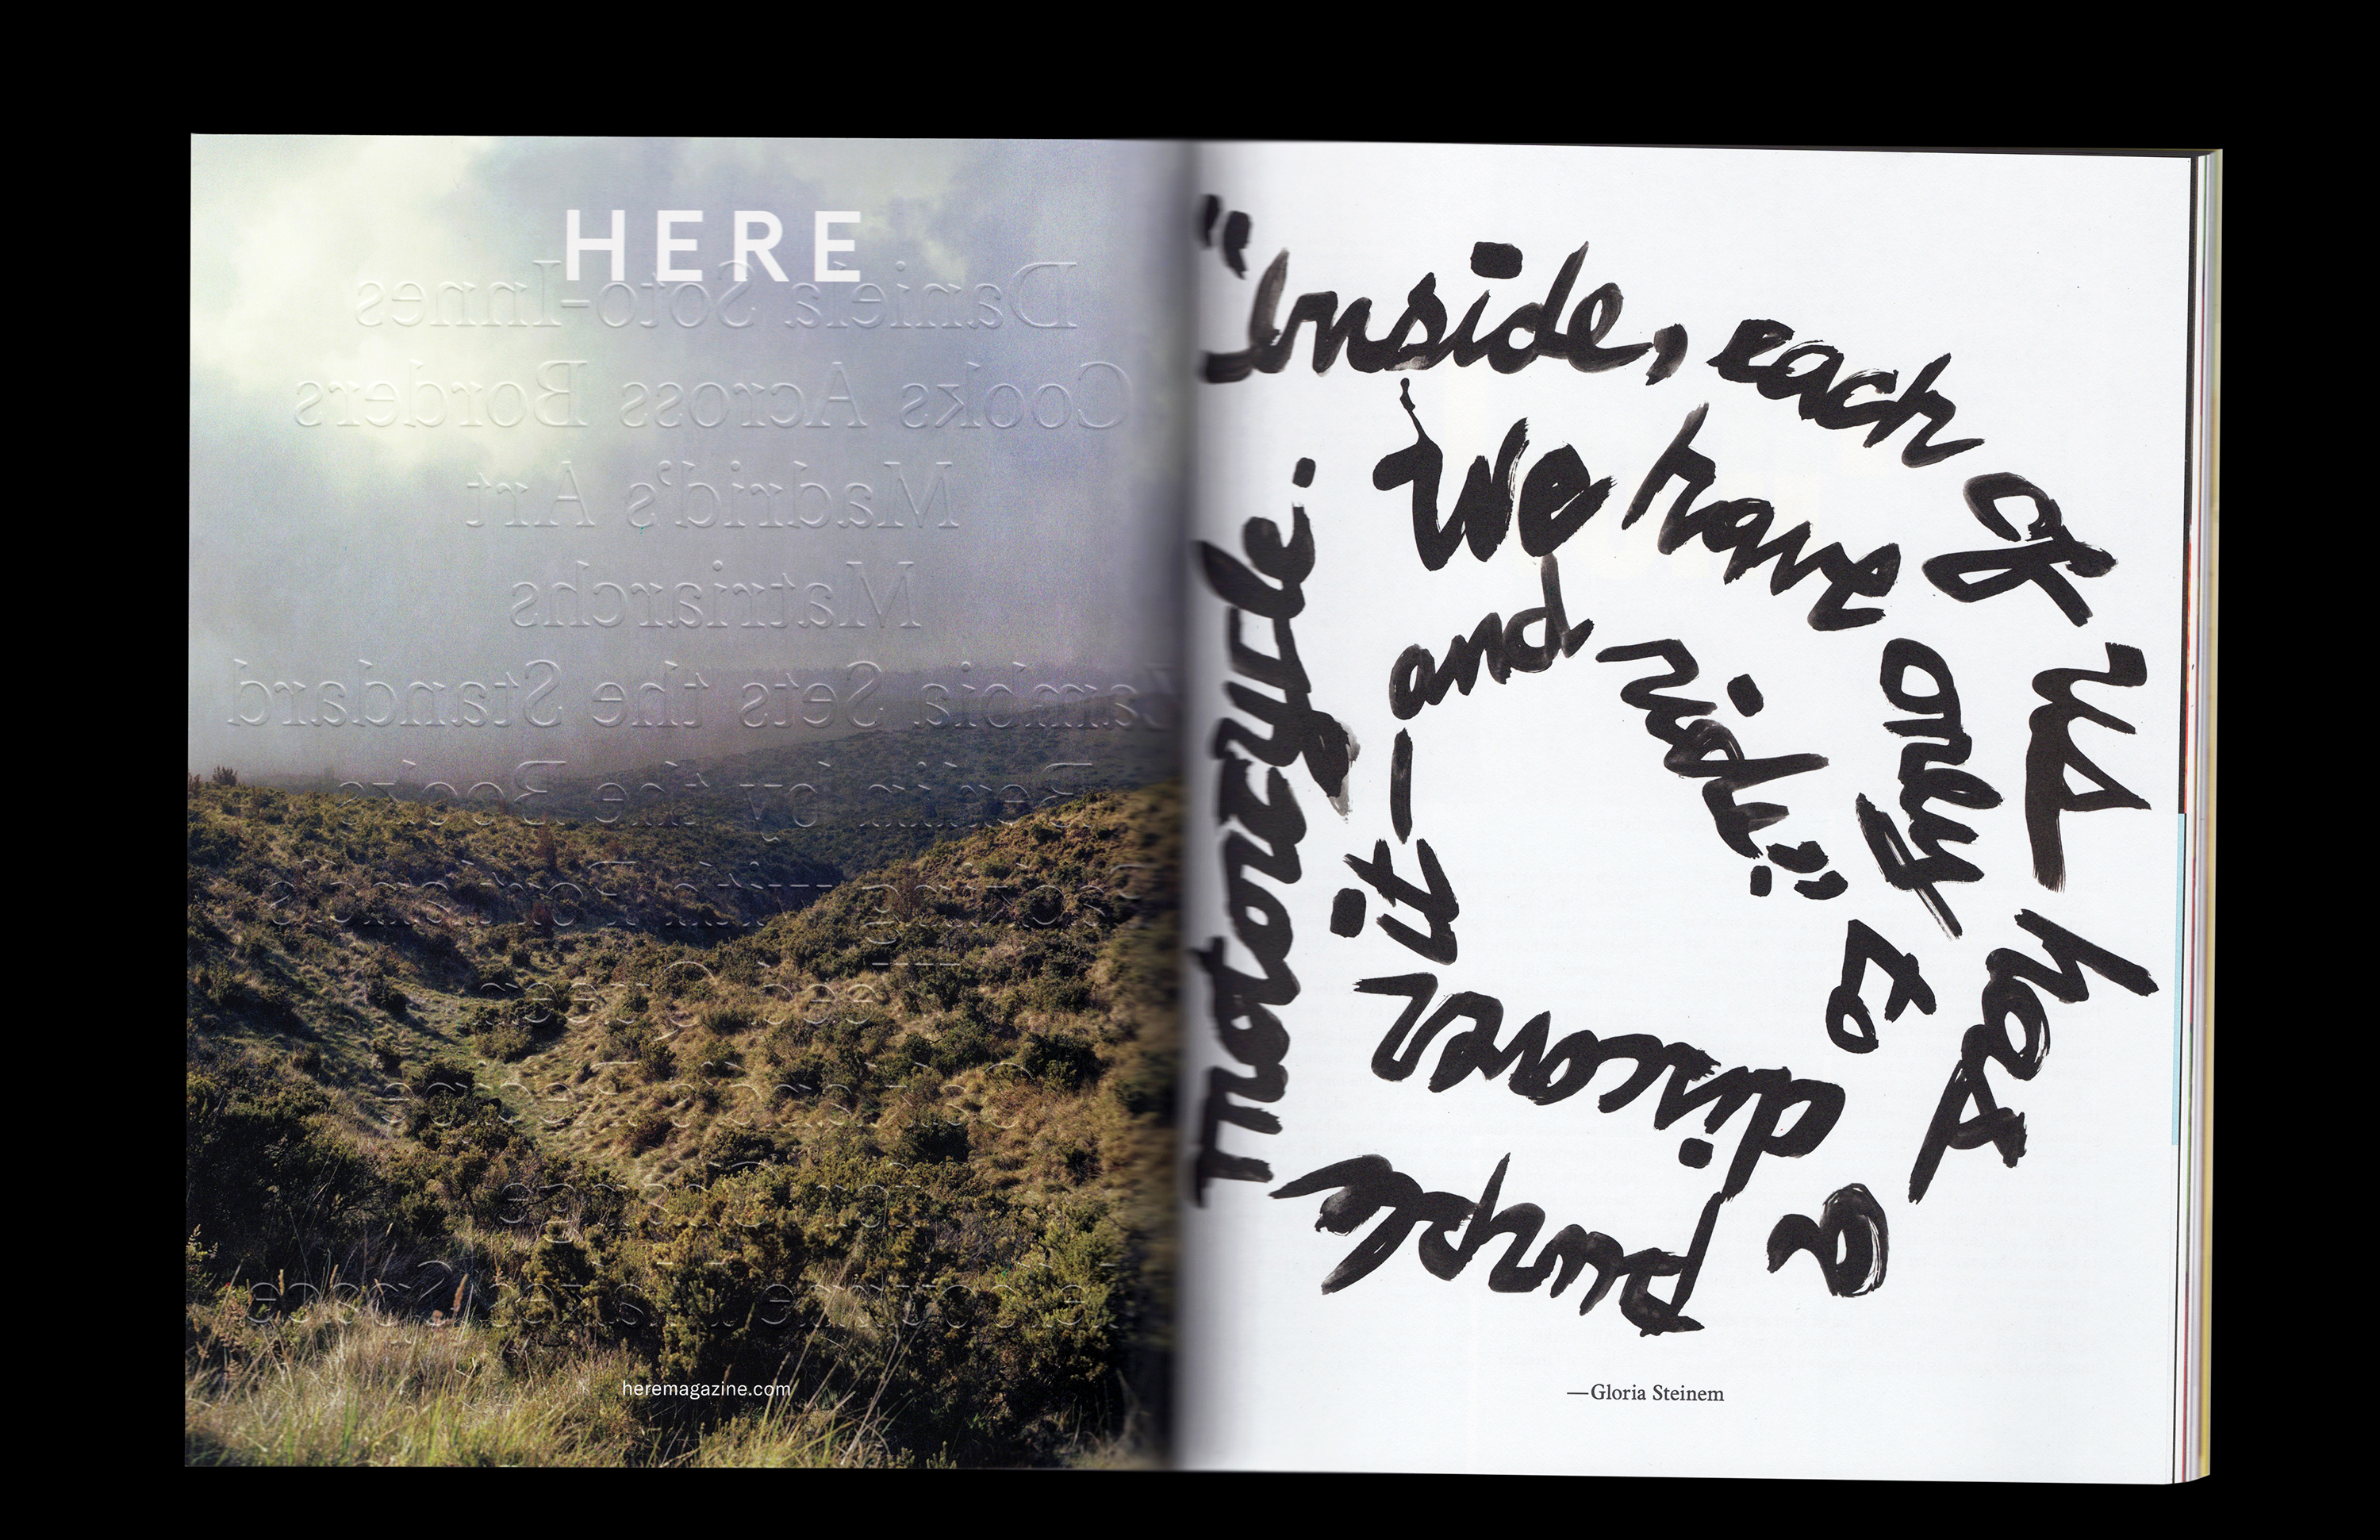 HERE
Daniela Soto-Innes
Cooks Across Borders
Madrid's Art
Matriarchs
Zambia Sets the Standard
Berlin by the Books
heremagazine.com
"Inside, each of us has
a purple
motorcycle.
We have only to
discover
it—and ride."
—Gloria Steinem